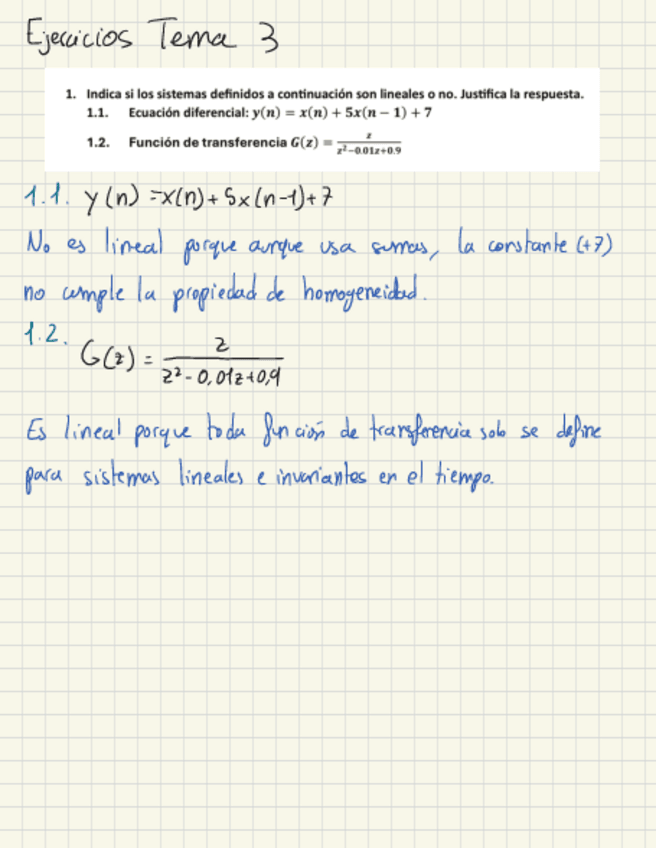 Ejercicios Tema 3
1. Indica si los sistemas definidos a continuación son lineales o no. Justifica la respuesta.
1.1. Ecuación diferencial: y(n) = x(n) + 5x(n − 1) + 7
1.2. Función de transferencia G(z) = z / (z²−0.01z+0.9)
1.1. y(n) = x(n) + 5x(n-1) + 7
No es lineal porque aunque usa sumas, la constante (+7)
no cumple la propiedad de homogeneidad.
1.2. G(z) = z / (z² - 0,01z + 0,9)
Es lineal porque toda función de transferencia solo se define
para sistemas lineales e invariantes en el tiempo.